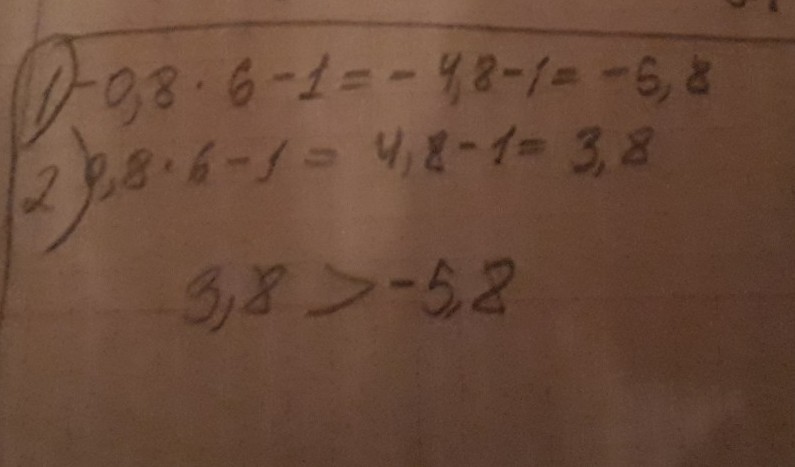 1) -0,8 · 6 - 1 = - 4,8 - 1 = -5,8
2) 0,8 · 6 - 1 = 4,8 - 1 = 3,8
3,8 > -5,8